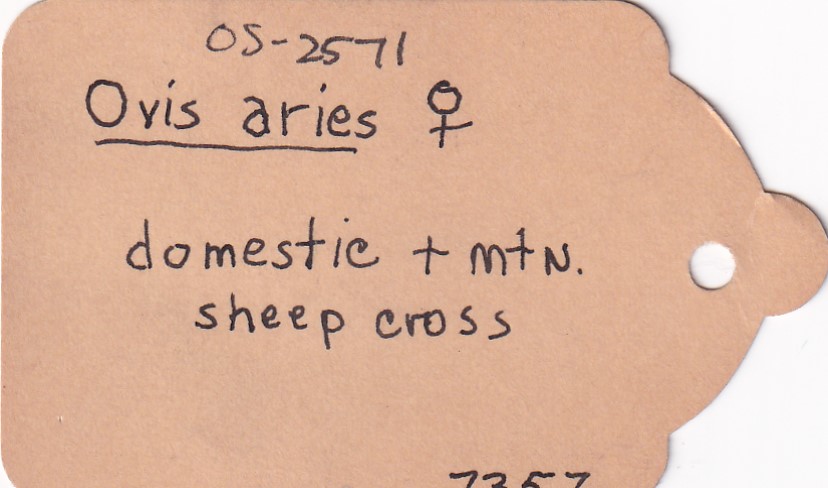 OS-2571
Ovis aries ♀
domestic + mtn.
sheep cross
7357